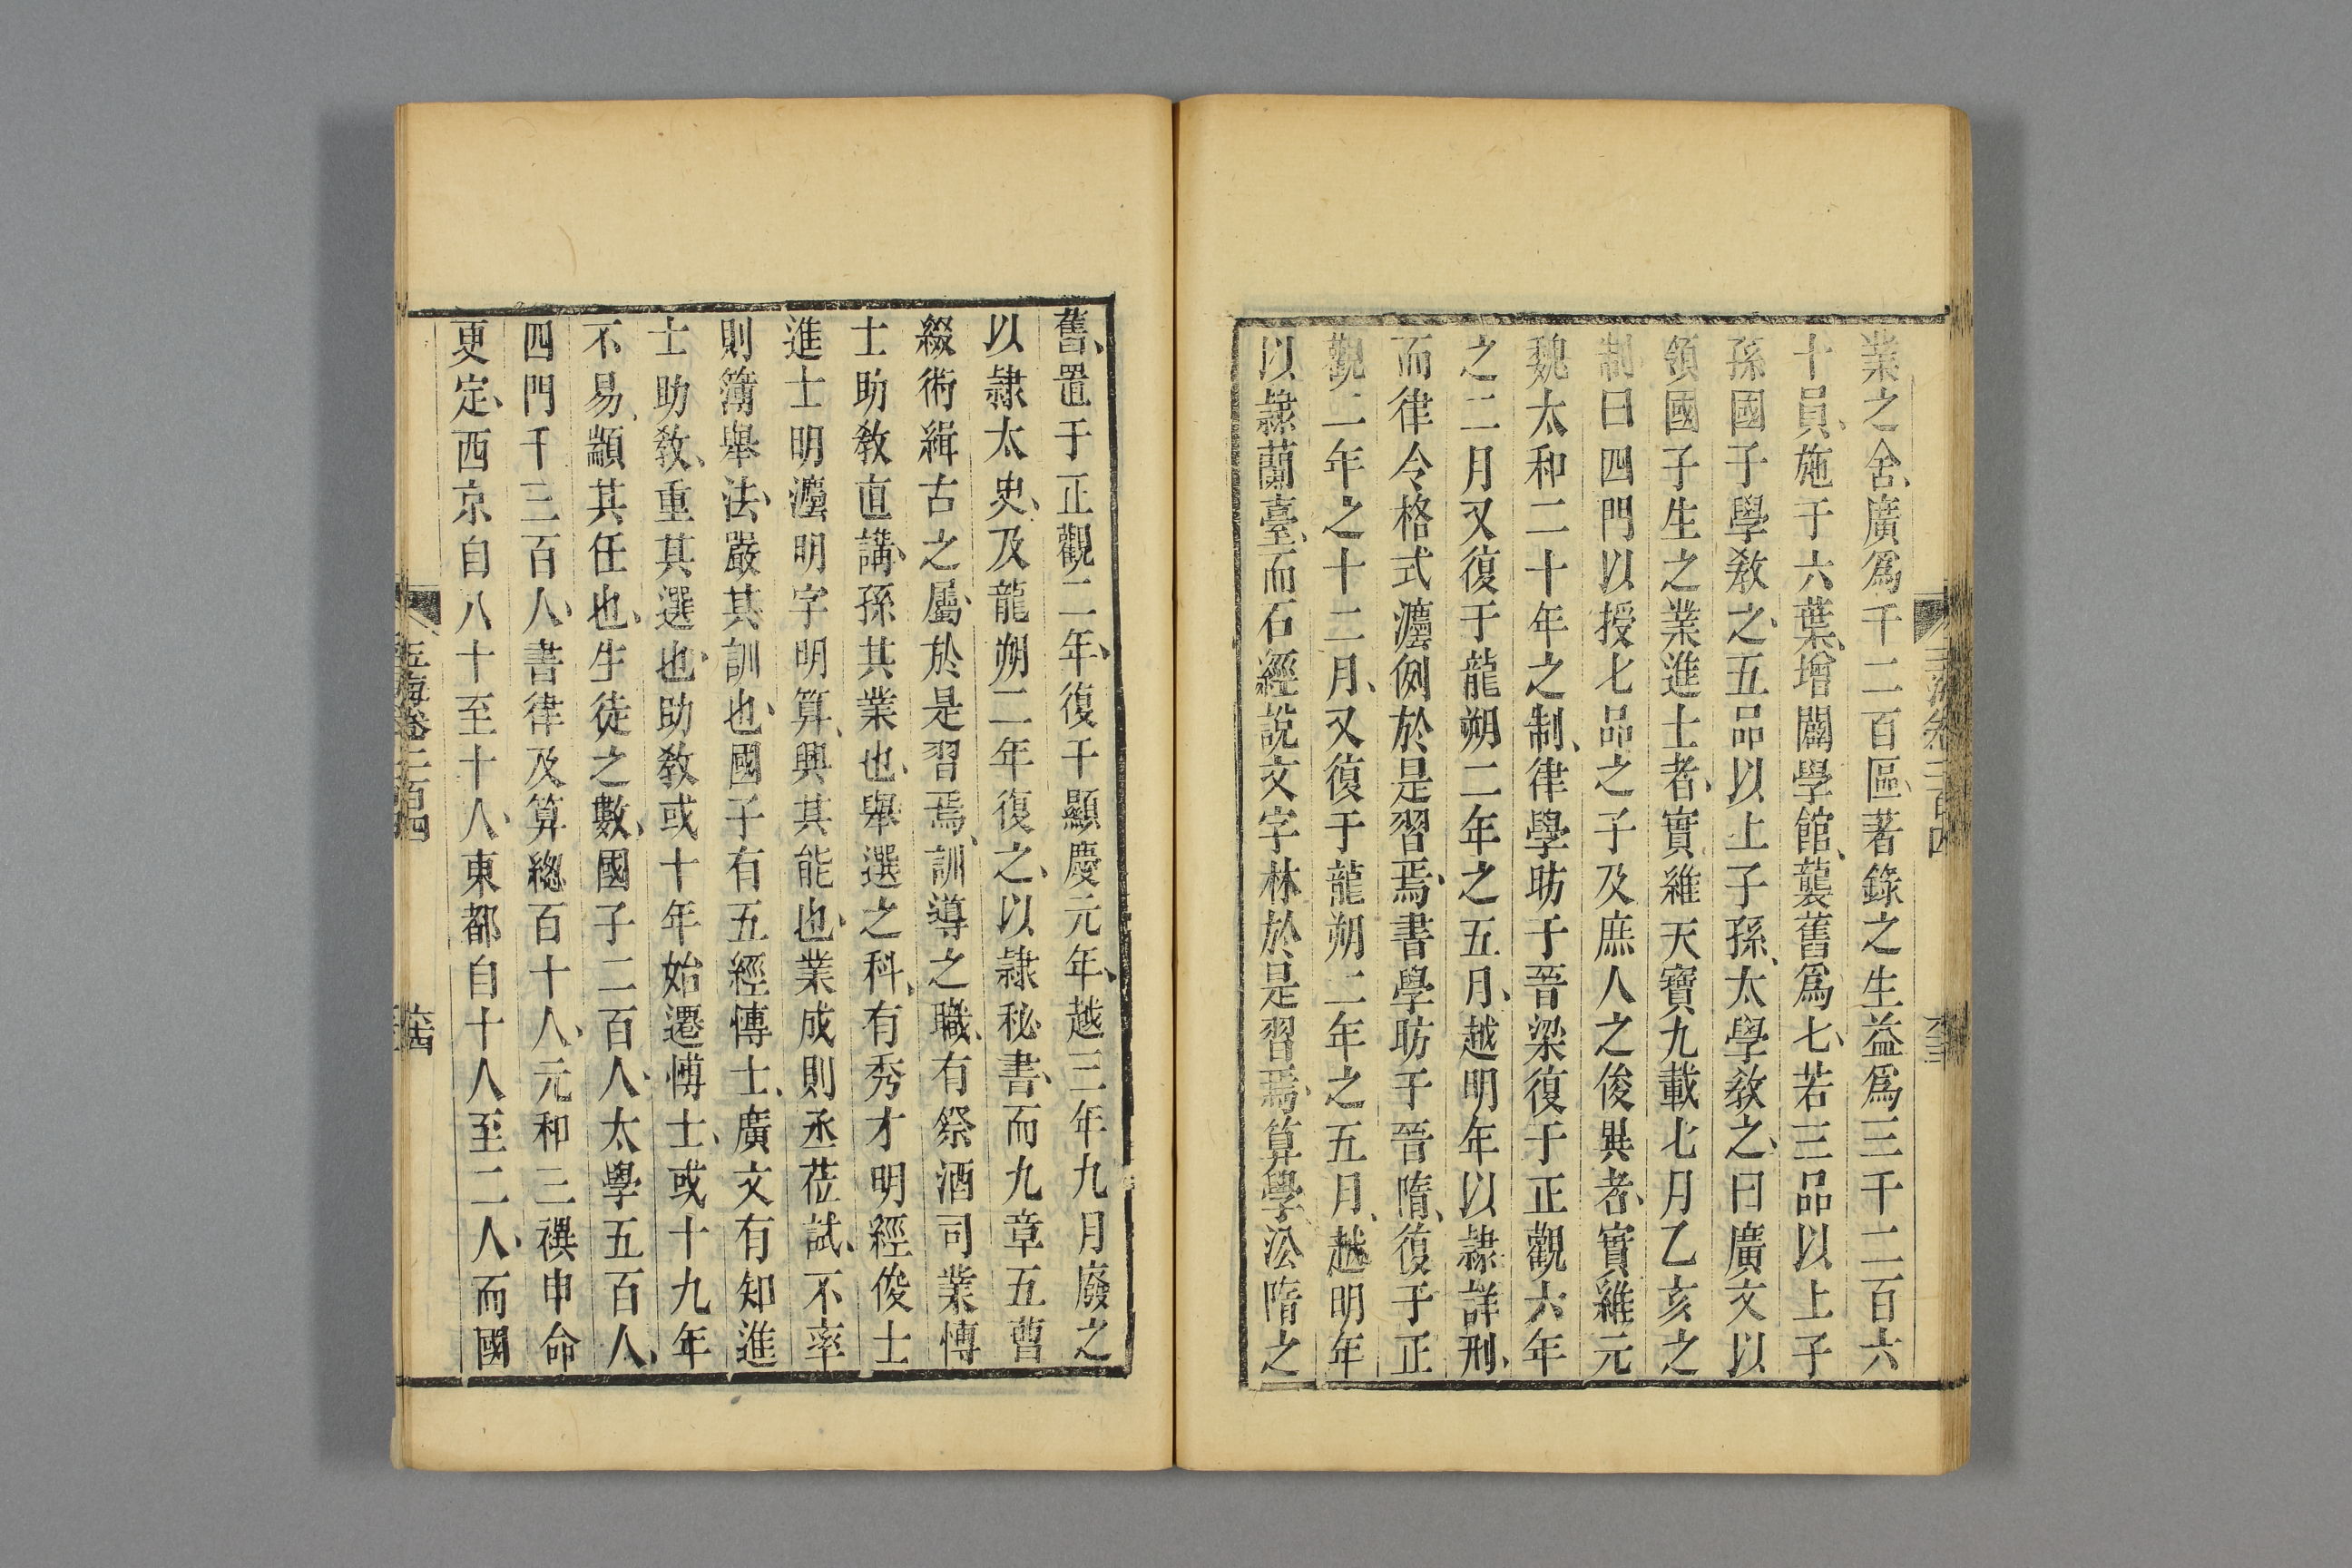 業之舍、廣爲千二百區、著錄之生益爲三千二百六
十員、施于六葉、增闢學館、襲舊爲七、若三品以上子
孫國子學敎之、五品以上子孫、太學敎之、曰廣文以
領國子生之業進士者、實維天寶九載七月乙亥之
制曰四門以授七品之子及庶人之俊異者、實維元
魏太和二十年之制、律學昉于晉梁復于正觀六年
之二月又復于龍朔二年之五月、越明年以隷詳刑、
而律令格式灋例於是習焉、書學昉于晉隋、復于正
觀二年之十二月、又復于龍朔二年之五月、越明年
以隷蘭臺、而石經說文字林於是習焉、算學、㳂隋之
舊、置于正觀二年、復于顯慶元年、越三年九月廢之
以隷太史、及龍朔二年復之、以隷秘書、而九章五曹
綴術緝古之屬、於是習焉、訓導之職、有祭酒司業博
士助敎直講、孫其業也、舉選之科、有秀才明經俊士
進士明灋明字明算、興其能也、業成則丞莅試、不率
則簿舉法、嚴其訓也、國子有五經博士、廣文有知進
士助敎、重其選也、助敎或十年始遷博士、或十九年
不易、顓其任也、生徒之數、國子二百人、太學五百人、
四門千三百人、書律及算總百十人、元和三禩申命
更定、西京自八十至十人、東都自十人至二人、而國
玉海卷二百四